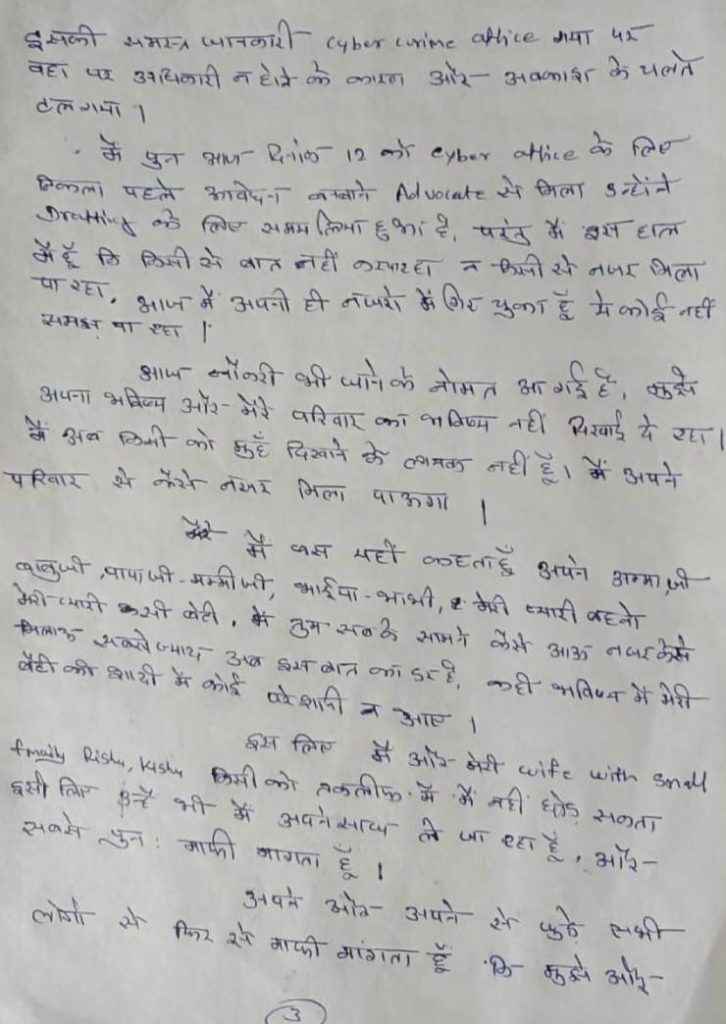 इसकी समस्त जानकारी cyber crime office गया पर
वहा पर अधिकारी न होने के कारण और अवकाश के चलते
टल गया।
मैं पुन आज दिनांक 12 को cyber office के लिए
निकला पहले आवेदन बनवाने Advocate से मिला उन्होंने
Drafting के लिए समय लिया हुआ है, परंतु मैं इस हाल
में हूँ कि किसी से बात नहीं कर पा रहा न किसी से नजर मिला
पा रहा, आज मैं अपनी ही नजरो में गिर चुका हूँ ये कोई नहीं
समझ पा रहा।
आज नौकरी भी जाने के नोमत आ गई है, मुझे
अपना भविष्य और मेरे परिवार का भविष्य नहीं दिखाई दे रहा।
मैं अब किसी को मुहँ दिखाने के लायक नहीं हूँ। मैं अपने
परिवार से कैसे नजर मिला पाऊगा।
मैं बस यही कहता हूँ अपने अम्मा जी
बाबुजी, पापाजी-मम्मीजी, भाईया-भाभी, मेरी प्यारी बहनो
मेरी प्यारी बेटी, मैं तुम सब के सामने कैसे आऊ नजर कैसे
मिलाऊ सबसे ज्यादा अब इस बात का डर है, कही भविष्य में मेरी
बेटी की शादी में कोई परेशानी न आए।
इस लिए मैं और मेरी wife with small
family Rishu, Kishu किसी को तकलीफ में मैं नहीं छोड़ सकता
इसी लिए उन्हें भी मैं अपने साथ ले जा रहा हूँ, और
सबसे पुन: माफी मागता हूँ।
अपने और अपने से जुड़े सभी
लोगो से फिर से माफी मांगता हूँ कि मुझे और
3